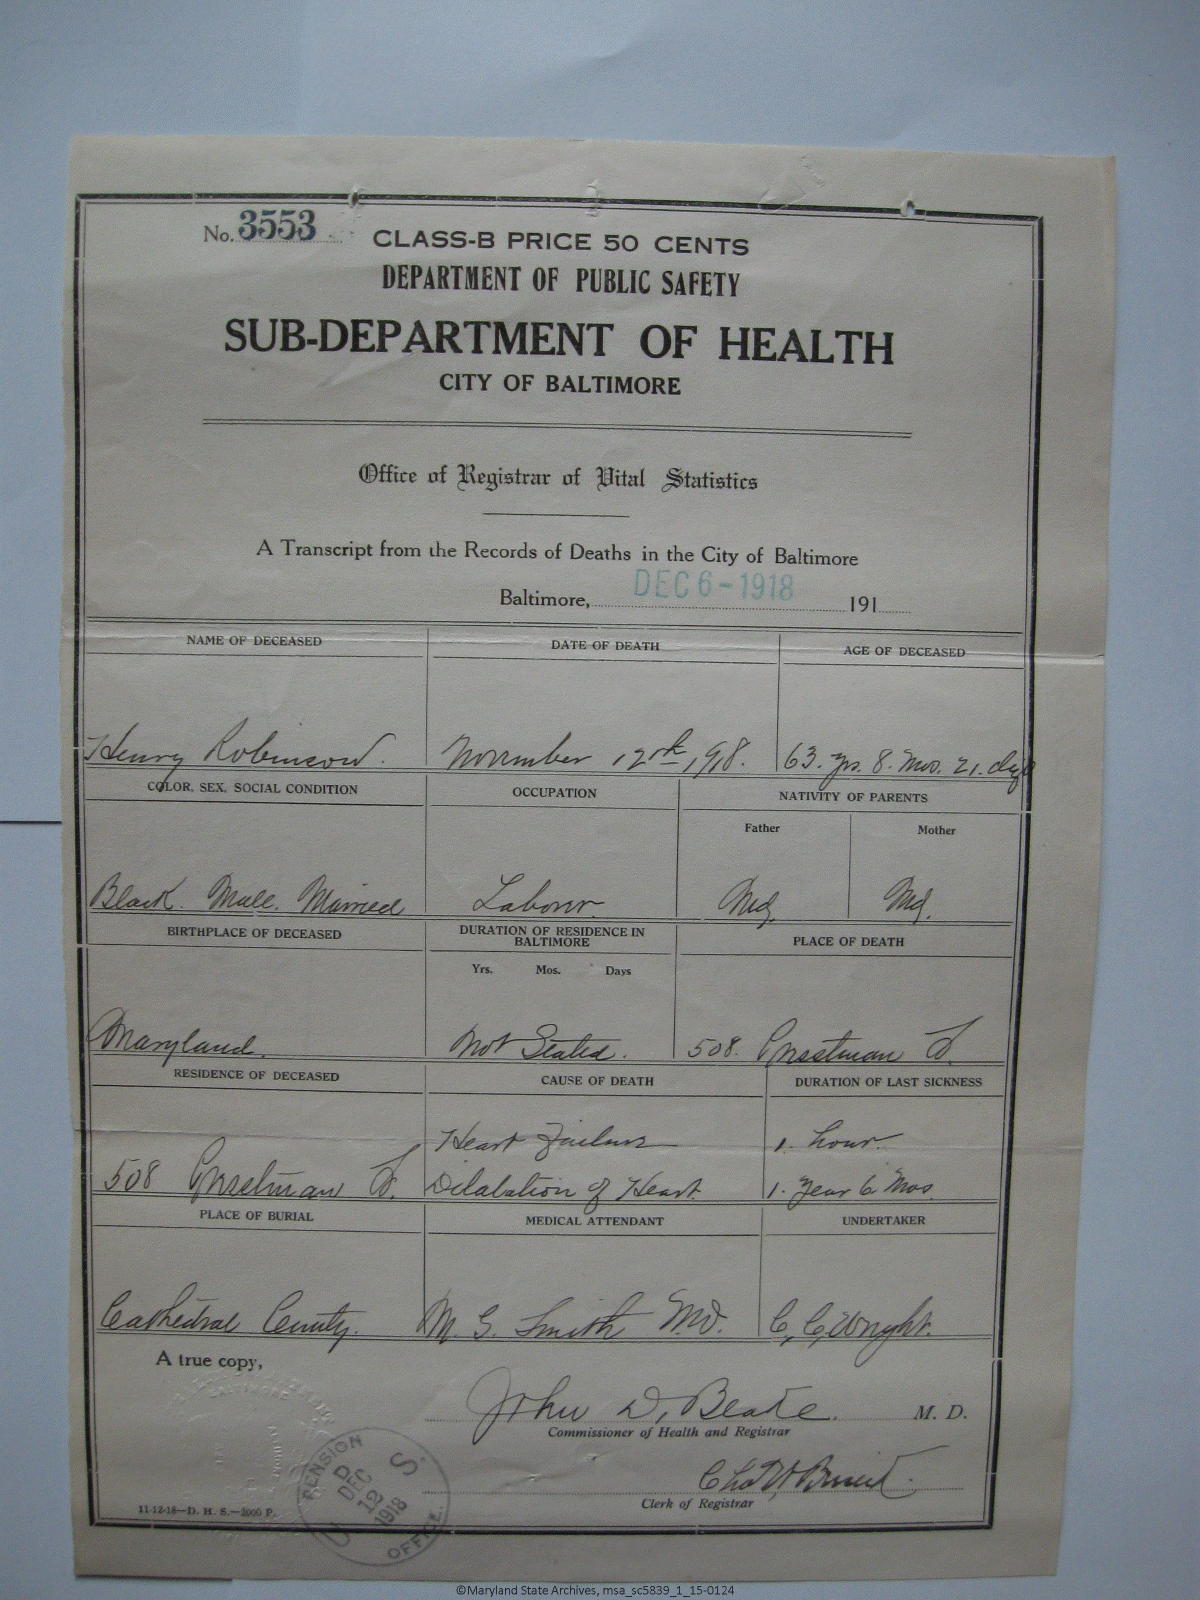 No. 3553
CLASS-B PRICE 50 CENTS
DEPARTMENT OF PUBLIC SAFETY
SUB-DEPARTMENT OF HEALTH
CITY OF BALTIMORE
Office of Registrar of Vital Statistics
A Transcript from the Records of Deaths in the City of Baltimore
Baltimore, DEC 6-1918 191
NAME OF DECEASED
DATE OF DEATH
AGE OF DECEASED
Henry Robinson.
November 12th, 1918.
63. yrs. 8. Mos. 21. dys
COLOR, SEX, SOCIAL CONDITION
OCCUPATION
NATIVITY OF PARENTS
Father
Mother
Black. Male. Married
Labour.
Md.
Md.
BIRTHPLACE OF DECEASED
DURATION OF RESIDENCE IN
BALTIMORE
PLACE OF DEATH
Yrs. Mos. Days
Maryland.
Not Stated.
508. Presstman St.
RESIDENCE OF DECEASED
CAUSE OF DEATH
DURATION OF LAST SICKNESS
508 Presstman St.
Heart Failure
Dilatation of Heart.
1. hour.
1. Year 6. Mos.
PLACE OF BURIAL
MEDICAL ATTENDANT
UNDERTAKER
Cathedral
M. G. Smith M.D.
C. C. Wright.
A true copy,
John D. Blake. M. D.
Commissioner of Health and Registrar
Clerk of Registrar
11-12-18—D. H. S.—2000 P.
U. S. PENSION OFFICE.
DEC 12 1918
BALTIMORE
©Maryland State Archives, msa_sc5839_1_15-0124